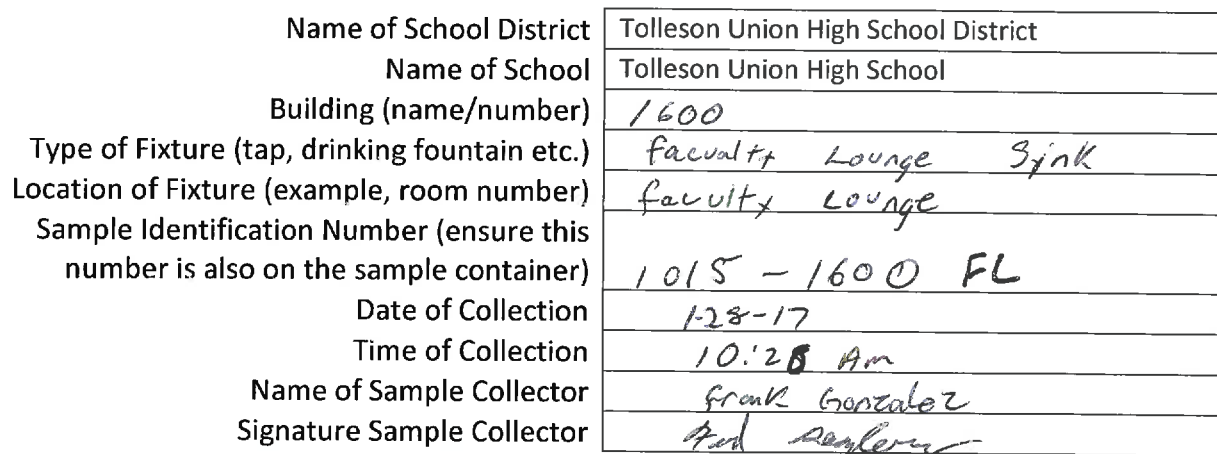 Name of School District Tolleson Union High School District
Name of School Tolleson Union High School
Building (name/number) 1600
Type of Fixture (tap, drinking fountain etc.) facualty Lounge Sink
Location of Fixture (example, room number) faculty Lounge
Sample Identification Number (ensure this
number is also on the sample container) 1015 - 1600 FL
Date of Collection 1-28-17
Time of Collection Am
Name of Sample Collector Frank Gonzalez
Signature Sample Collector